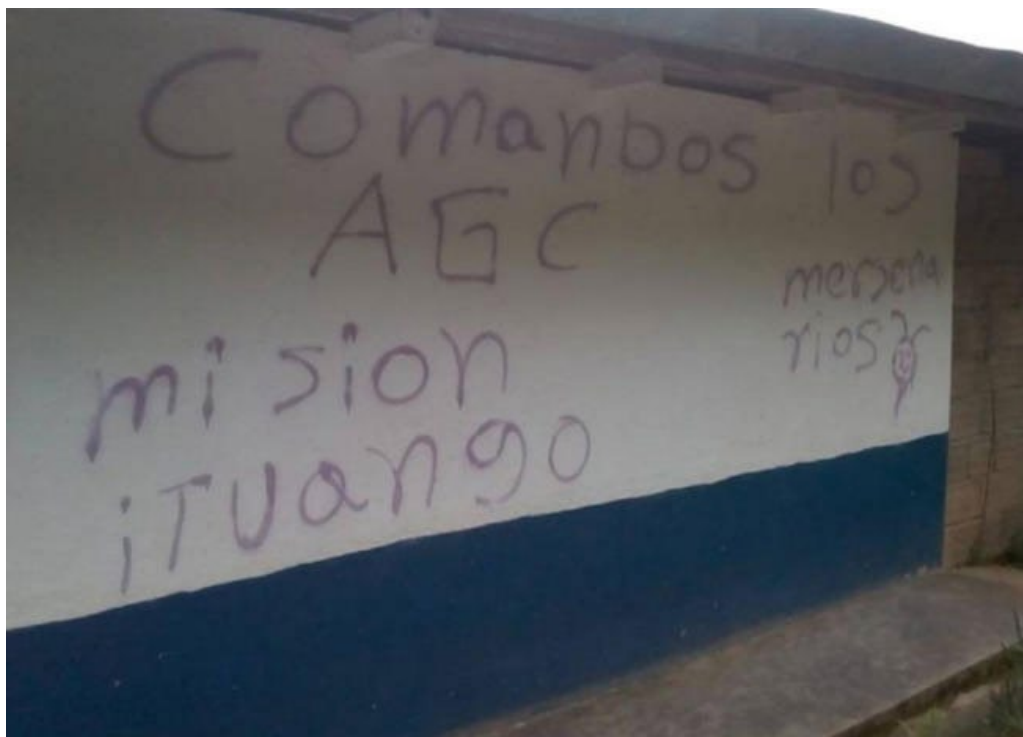 Comanbos los
AGC
mersena
rios
mision
iTUango